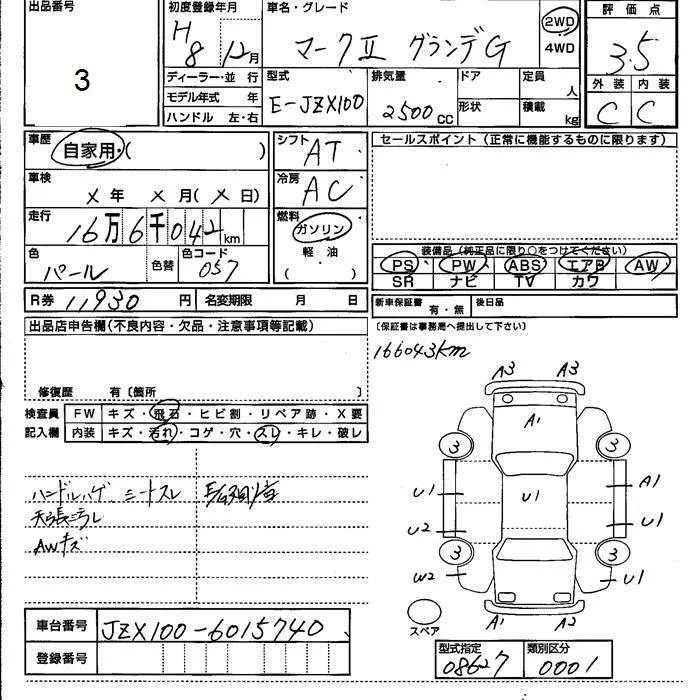 出品番号
3
初度登録年月
H8 12月
車名・グレード
マークⅡ グランデG
2WD
4WD
評価点
3.5
ディーラー・並行
モデル年式 年
ハンドル 左・右
型式
E-JZX100
排気量
2500cc
ドア
形状
定員 人
積載 kg
外装 内装
C C
車歴
自家用・( )
シフト
AT
車検
X年 X月(X日)
冷房
AC
走行
16万6千042km
燃料
ガソリン
軽油
( )
色
パール
色替
色コード
057
R券 11930円
名変期限 月 日
セールスポイント (正常に機能するものに限ります)
装備品 (純正品に限り○をつけてください)
PS PW ABS エアB AW
SR ナビ TV カワ
新車保証書 有・無
後日品
〔保証書は事務局へ提出して下さい〕
出品店申告欄(不良内容・欠品・注意事項等記載)
修復歴 有〔箇所 〕
検査員
記入欄
FW キズ・飛石・ヒビ割・リペア跡・X要
内装 キズ・汚れ・コゲ・穴・スレ・キレ・破レ
ハンドルハゲ シートスレ
天張汚レ
AWキズ
166043km
A3 A3
A1
3 3
U1 U1 A1
U2 U1
3 3
W2 U1
スペア
A1 A2
車台番号 JZX100-6015740
登録番号
型式指定 08627
類別区分 0001